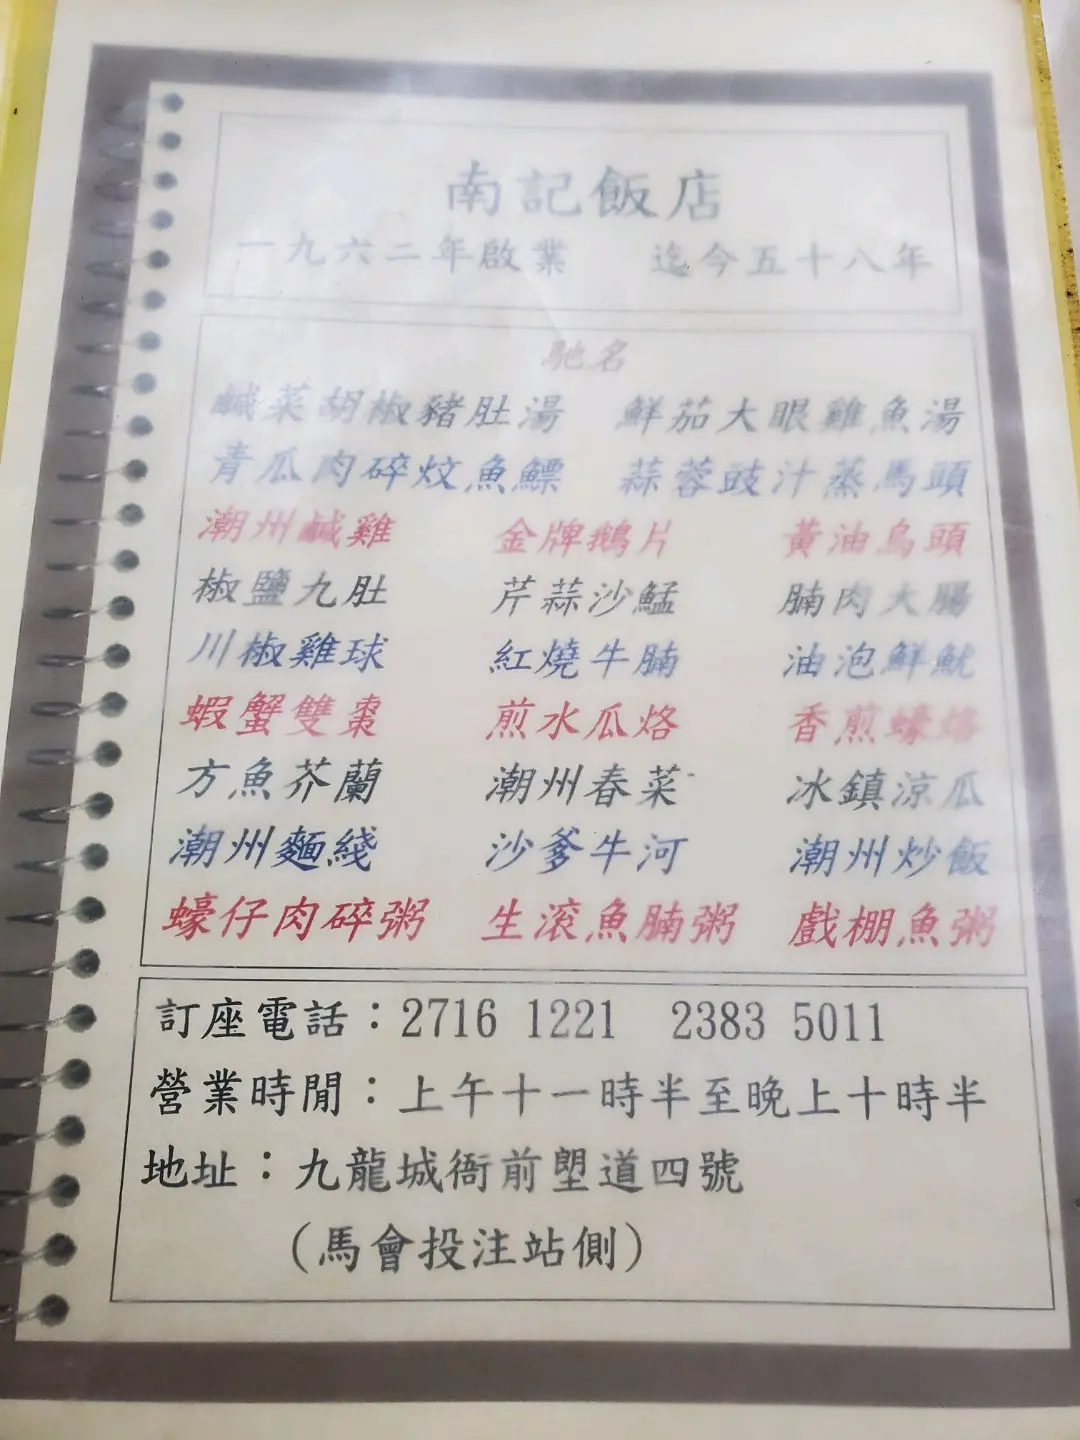 南記飯店
一九六二年啟業 迄今五十八年
馳名
鹹菜胡椒豬肚湯 鮮茄大眼雞魚湯
青瓜肉碎炆魚鰾 蒜蓉豉汁蒸馬頭
潮州鹹雞 金牌鵝片 黃油烏頭
椒鹽九肚 芹蒜沙鯭 腩肉大腸
川椒雞球 紅燒牛腩 油泡鮮魷
蝦蟹雙棗 煎水瓜烙 香煎蠔烙
方魚芥蘭 潮州春菜 冰鎮涼瓜
潮州麵綫 沙爹牛河 潮州炒飯
蠔仔肉碎粥 生滾魚腩粥 戲棚魚粥
訂座電話：2716 1221 2383 5011
營業時間：上午十一時半至晚上十時半
地址：九龍城衙前塱道四號
（馬會投注站側）